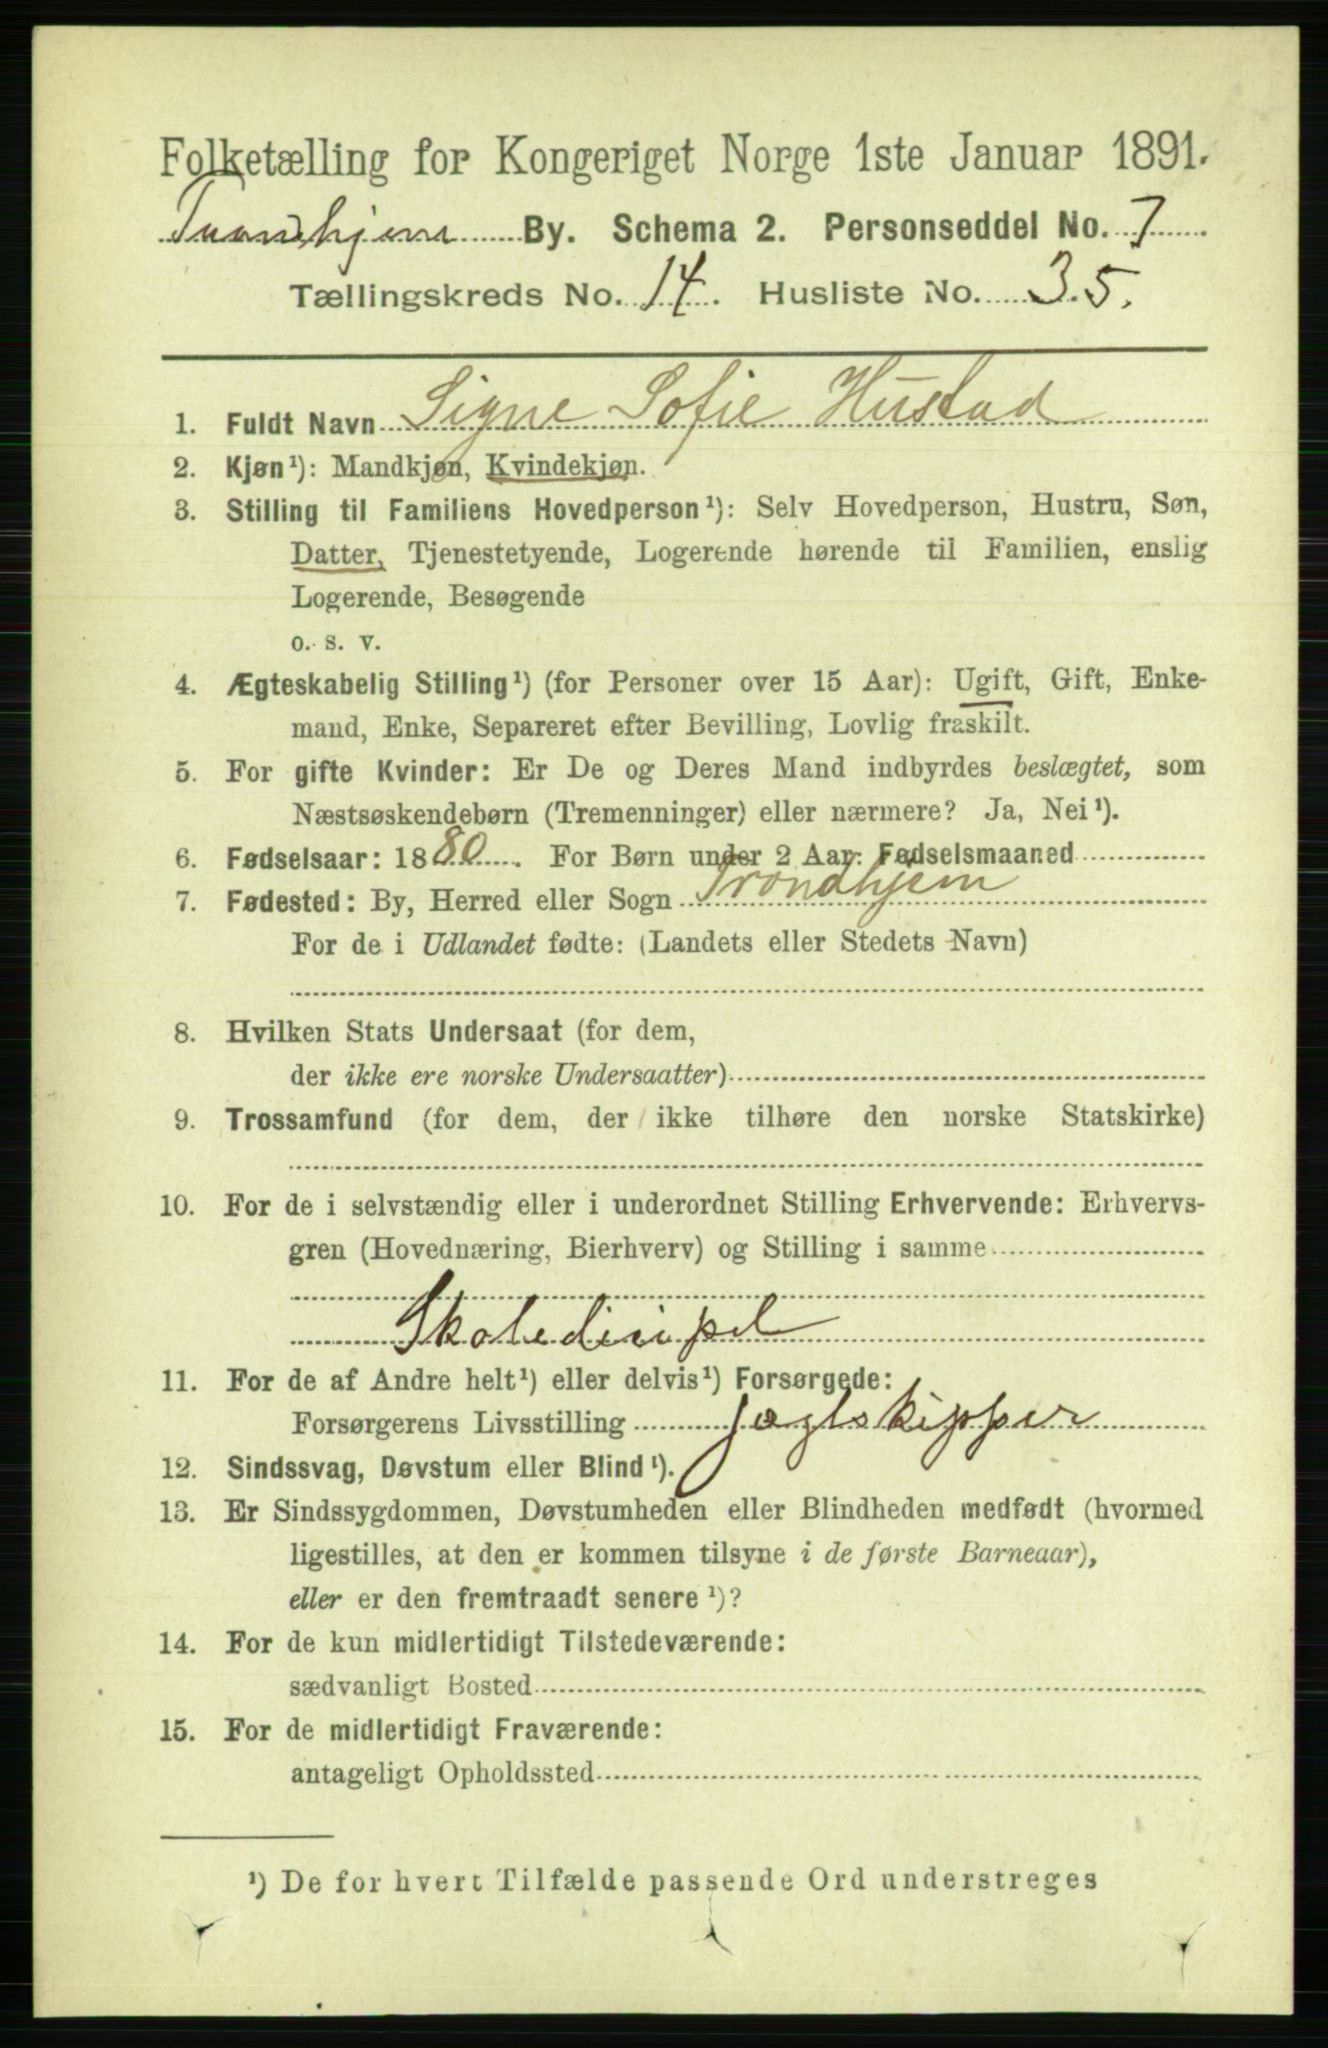 Folketælling for Kongeriget Norge 1ste Januar 1891.
Trondhjem By. Schema 2. Personseddel No. 7
Tællingskreds No. 14. Husliste No. 35.
1. Fuldt Navn Signe Sofie Hustad
2. Kjøn¹): Mandkjøn, Kvindekjøn.
3. Stilling til Familiens Hovedperson¹): Selv Hovedperson, Hustru, Søn,
Datter, Tjenestetyende, Logerende hørende til Familien, enslig
Logerende, Besøgende
o. s. v.
4. Ægteskabelig Stilling¹) (for Personer over 15 Aar): Ugift, Gift, Enke-
mand, Enke, Separeret efter Bevilling, Lovlig fraskilt.
5. For gifte Kvinder: Er De og Deres Mand indbyrdes beslægtet, som
Næstsøskendebørn (Tremenninger) eller nærmere? Ja, Nei¹).
6. Fødselsaar: 1880. For Børn under 2 Aar: Fødselsmaaned
7. Fødested: By, Herred eller Sogn Trondhjem
For de i Udlandet fødte: (Landets eller Stedets Navn)
8. Hvilken Stats Undersaat (for dem,
der ikke ere norske Undersaatter)
9. Trossamfund (for dem, der ikke tilhøre den norske Statskirke)
10. For de i selvstændig eller i underordnet Stilling Erhvervende: Erhvervs-
gren (Hovednæring, Bierhverv) og Stilling i samme
Skoledicipel
11. For de af Andre helt¹) eller delvis¹) Forsørgede:
Forsørgerens Livsstilling Jægtskipper
12. Sindssvag, Døvstum eller Blind¹).
13. Er Sindssygdommen, Døvstumheden eller Blindheden medfødt (hvormed
ligestilles, at den er kommen tilsyne i de første Barneaar),
eller er den fremtraadt senere¹)?
14. For de kun midlertidigt Tilstedeværende:
sædvanligt Bosted
15. For de midlertidigt Fraværende:
antageligt Opholdssted
¹) De for hvert Tilfælde passende Ord understreges